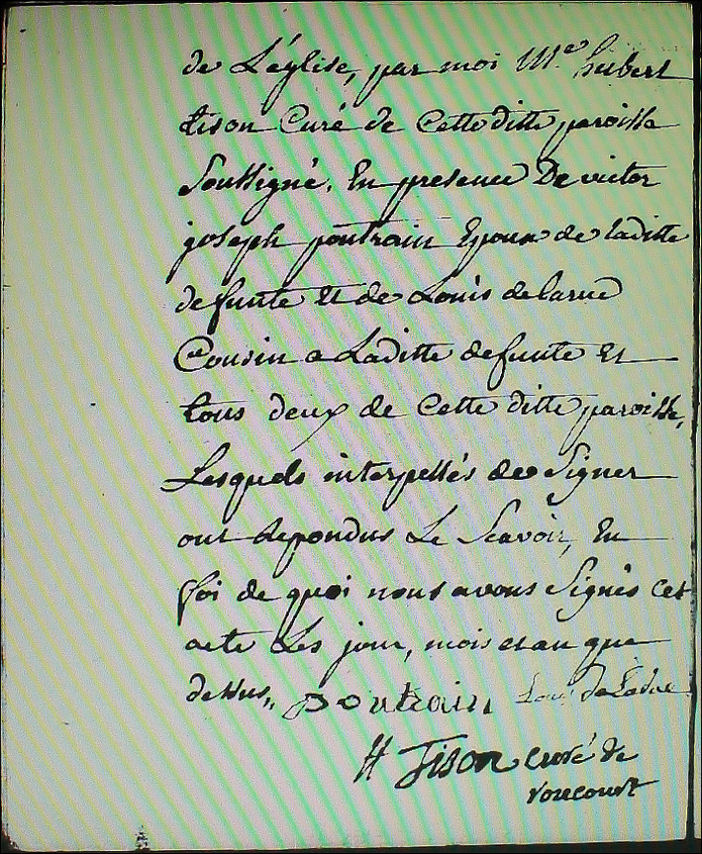 de L'église, par moi M.e hubert
tison Curé de Cette ditte paroisse
Soussigné, En presence De victor
joseph poutrain Epoux de laditte
defunte Et de Louis delarue
Cousin a Laditte defunte Et
tous deux de Cette ditte paroisse,
Lesquels interpellés de Signer
ont repondus Le Scavoir, En
foi de quoi nous avons Signés cet
acte Les jour, mois et an que
dessus,, poutrain Louis
H Tison curé de